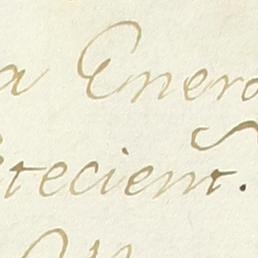 a Enero
tecient.